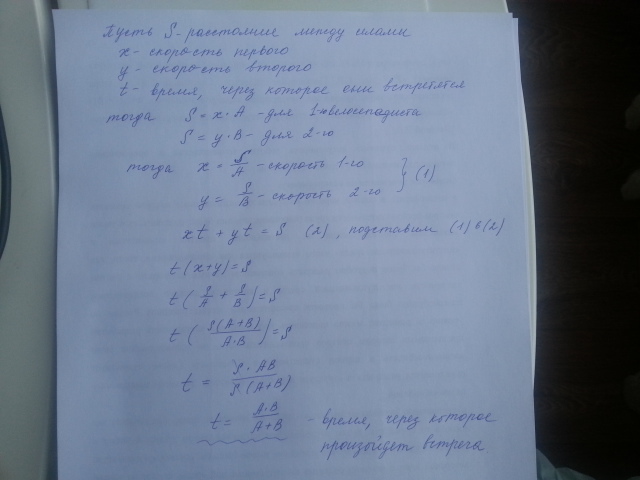 Пусть S - расстояние между ними
x - скорость первого
y - скорость второго
t - время, через которое они встретятся
тогда S = x · A - для 1-велосепедиста
S = y · B - для 2-го
тогда x = S/A - скорость 1-го
y = S/B - скорость 2-го } (1)
xt + yt = S (2), подставим (1) в (2)
t (x+y) = S
t (S/A + S/B) = S
t (S(A+B)/A·B) = S
t = S · AB / S · (A+B)
t = A·B / A+B - время, через которое
произойдет встреча